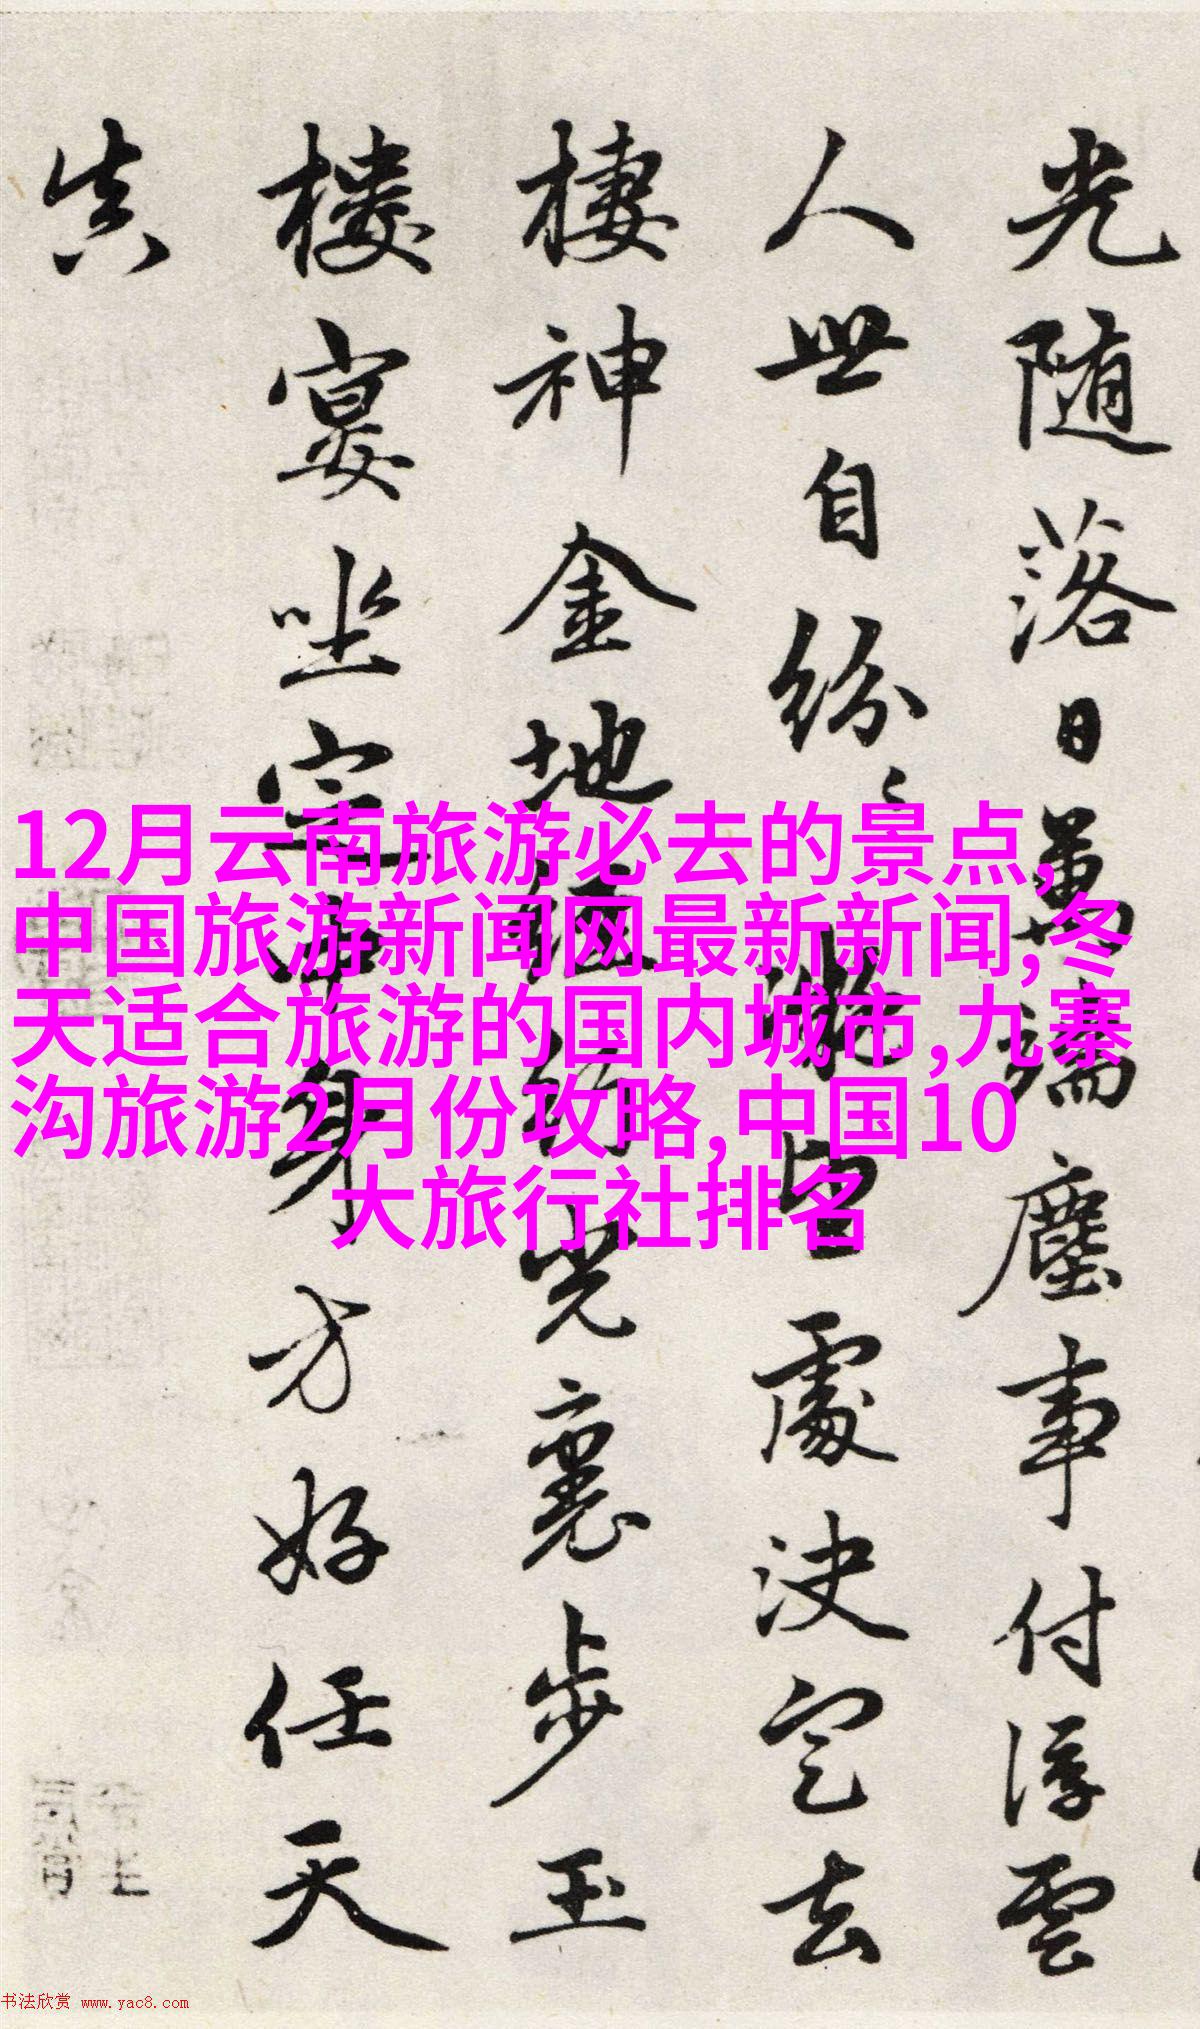 光随落日萬端塵事付浮雲
人世自紛〻皆處決定去
棲神金地經行光裏步玉
樓宴坐室中身方好任天
真
12月云南旅游必去的景点,
中国旅游新闻网最新新闻,冬
天适合旅游的国内城市,九寨
沟旅游2月份攻略,中国10
大旅行社排名
书法欣赏 www.yac8.com